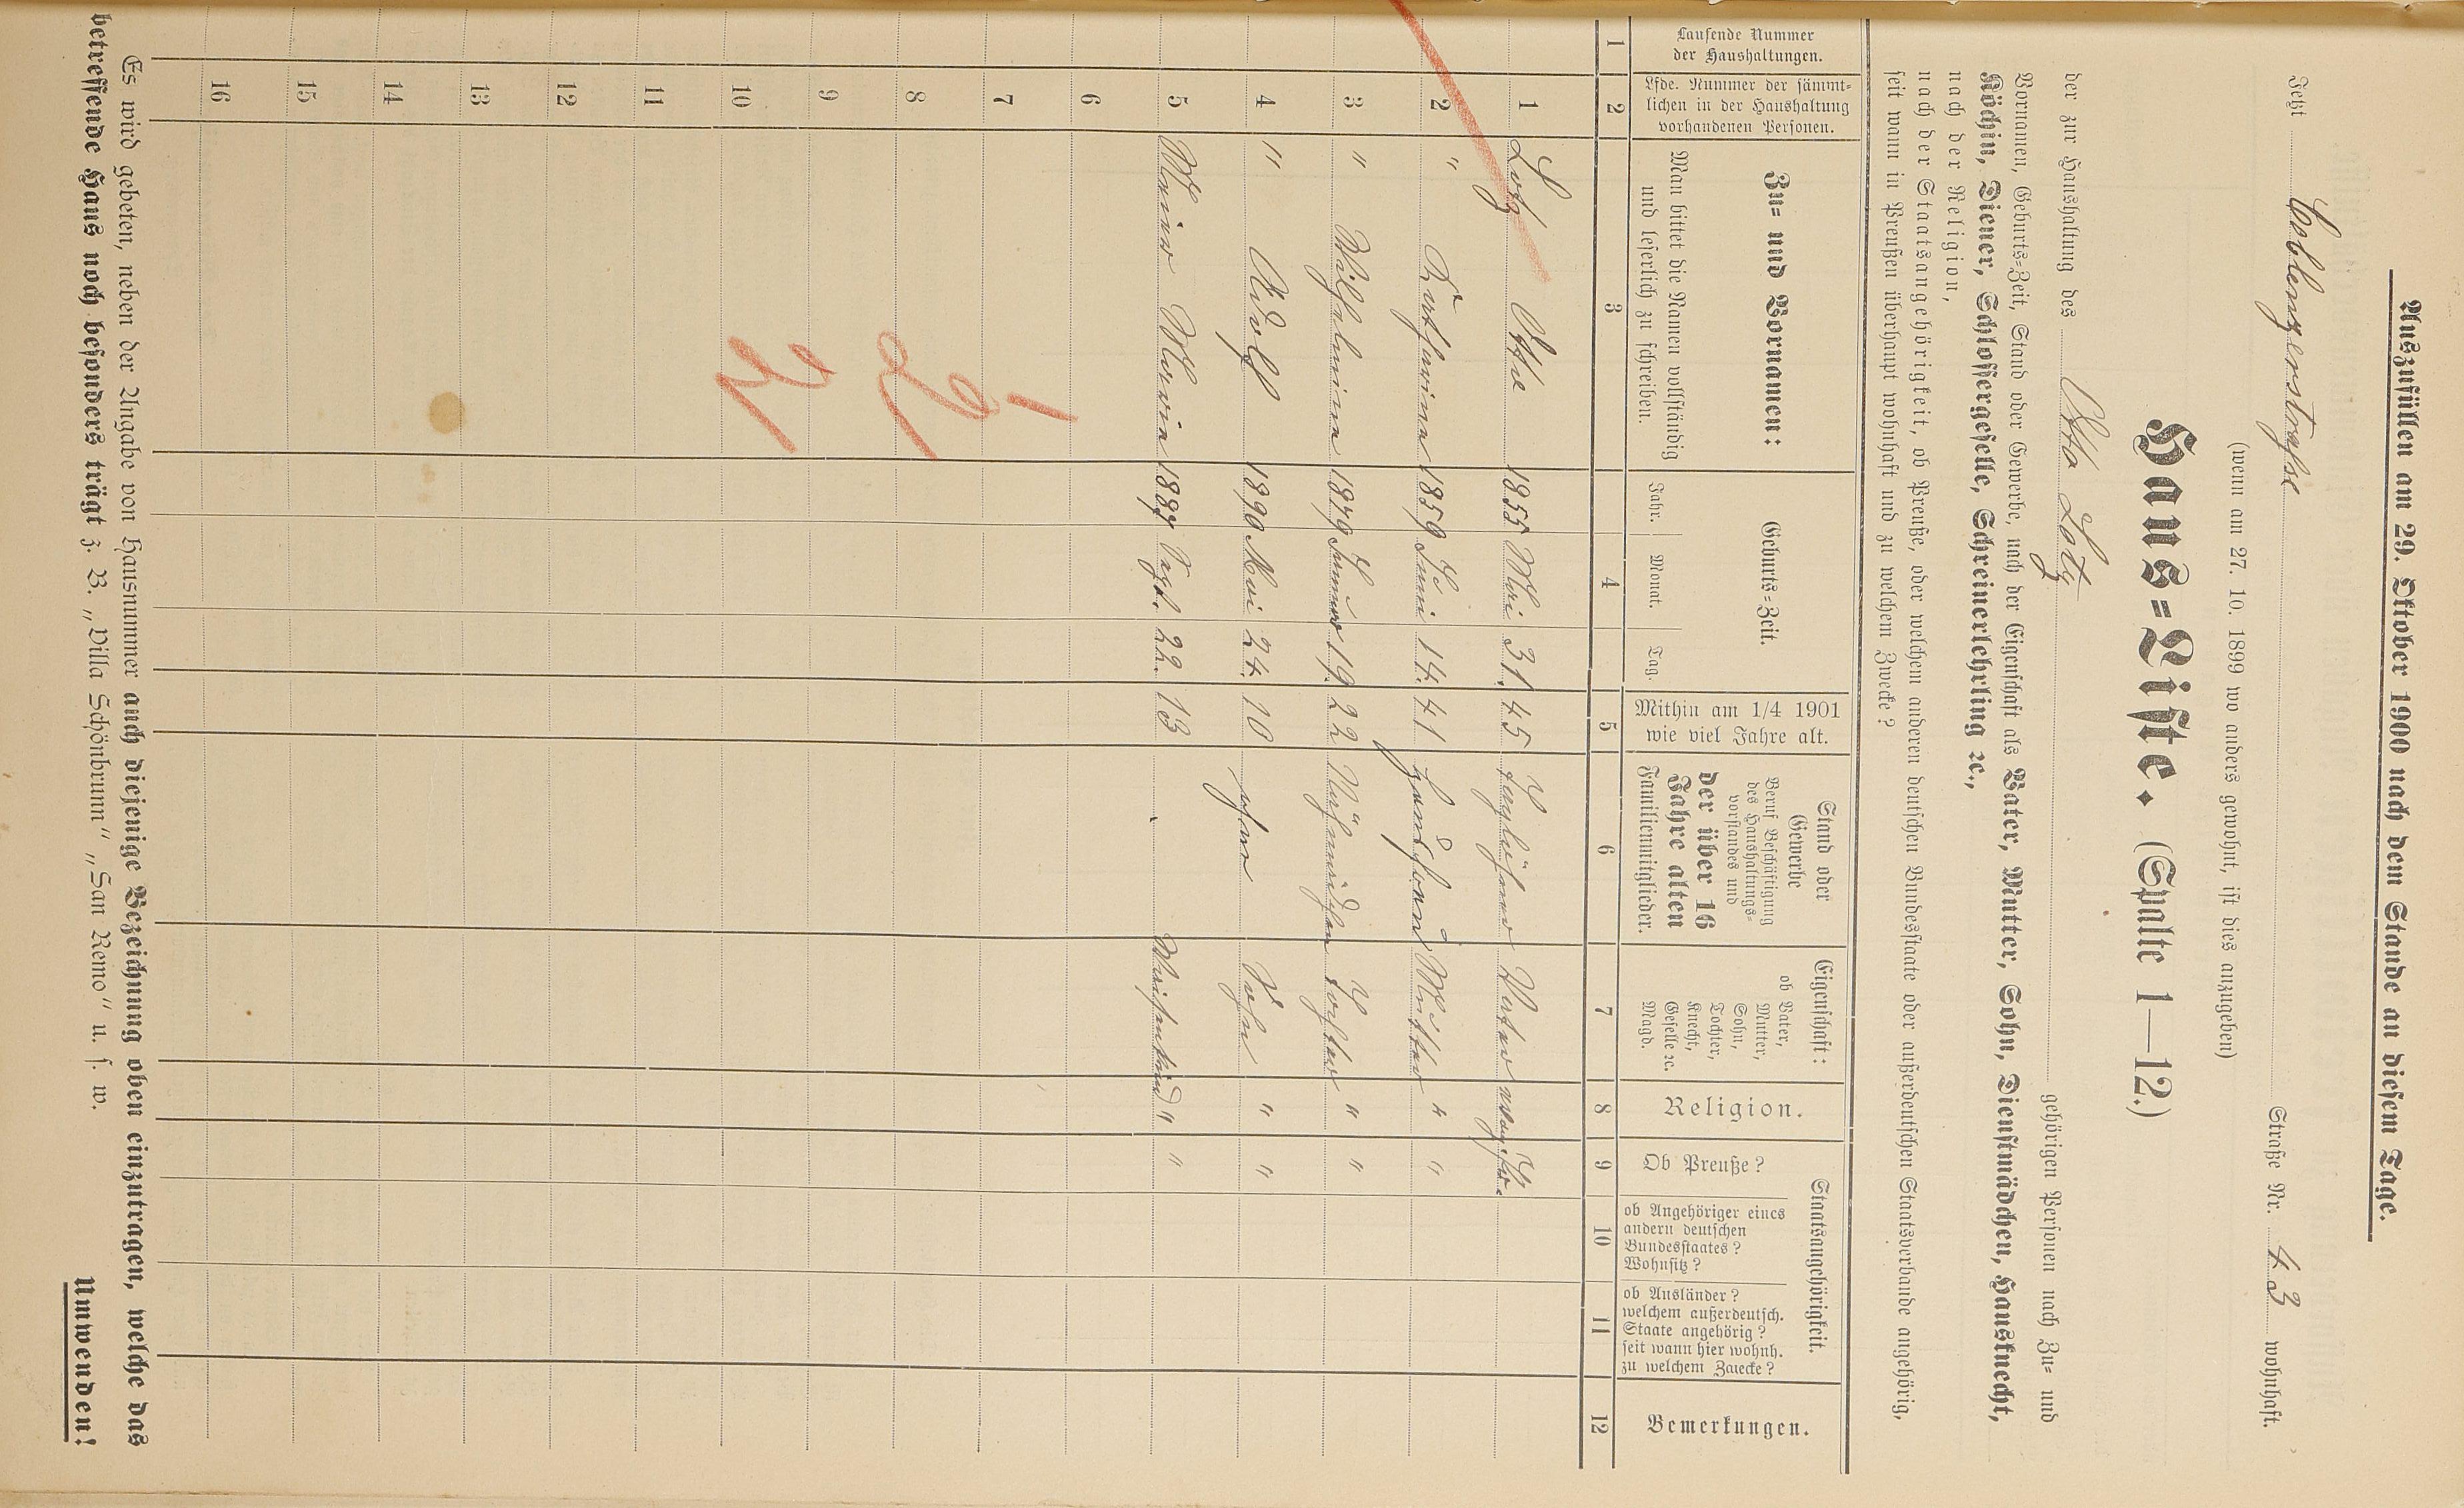 Auszufüllen am 29. Oktober 1900 nach dem Stande an diesem Tage.
Jetzt Coblenzerstraße Straße Nr. 43 wohnhaft.
(wenn am 27. 10. 1899 wo anders gewohnt, ist dies anzugeben)
Haus=Liste. (Spalte 1—12.)
der zur Haushaltung des Otto Lotz gehörigen Personen nach Zu= und
Vornamen, Geburts=Zeit, Stand oder Gewerbe, nach der Eigenschaft als Vater, Mutter, Sohn, Dienstmädchen, Hausknecht,
Köchin, Diener, Schlossergeselle, Schreinerlehrling ꝛc.,
nach der Religion,
nach der Staatsangehörigkeit, ob Preuße, oder welchem anderen deutschen Bundesstaate oder außerdeutschen Staatsverbande angehörig,
seit wann in Preußen überhaupt wohnhaft und zu welchem Zwecke?
Laufende Nummer
der Haushaltungen.
Lfde. Nummer der sämmt-
lichen in der Haushaltung
vorhandenen Personen.
Zu= und Vornamen:
Man bittet die Namen vollständig
und leserlich zu schreiben.
Geburts=Zeit.
Jahr. Monat. Tag.
Mithin am 1/4 1901
wie viel Jahre alt.
Stand oder
Gewerbe
Beruf Beschäftigung
des Haushaltungs=
vorstandes und
der über 16
Jahre alten
Familienmitglieder.
Eigenschaft:
ob Vater,
Mutter,
Sohn,
Tochter,
Knecht,
Geselle ꝛc.
Magd.
Religion.
Staatsangehörigkeit.
Ob Preuße?
ob Angehöriger eines
andern deutschen
Bundesstaates?
Wohnsitz?
ob Ausländer?
welchem außerdeutsch.
Staate angehörig?
seit wann hier wohnh.
zu welchem Zwecke?
Bemerkungen.
1 2 3 4 5 6 7 8 9 10 11 12
1 Lotz Otto 1855 Mai 31. 45 Taglöhner Vater evang. Ja.
2 " Katharina 1859 Juni 14. 41 Hausfrau Mutter " "
3 " Wilhelmina 1879 Januar 19. 22 Nähmädchen Tochter " "
4 " Adolf 1890 Mai 24. 10 ohne Sohn " "
5 Maria 1887 Sept. 22. 13 Waisenkind " "
6
7
8
9
10
11
12
13
14
15
16
Es wird gebeten, neben der Angabe von Hausnummer auch diejenige Bezeichnung oben einzutragen, welche das
betreffende Haus noch besonders trägt z. B. „Villa Schönbrunn“ „San Remo“ u. s. w.
Umwenden!